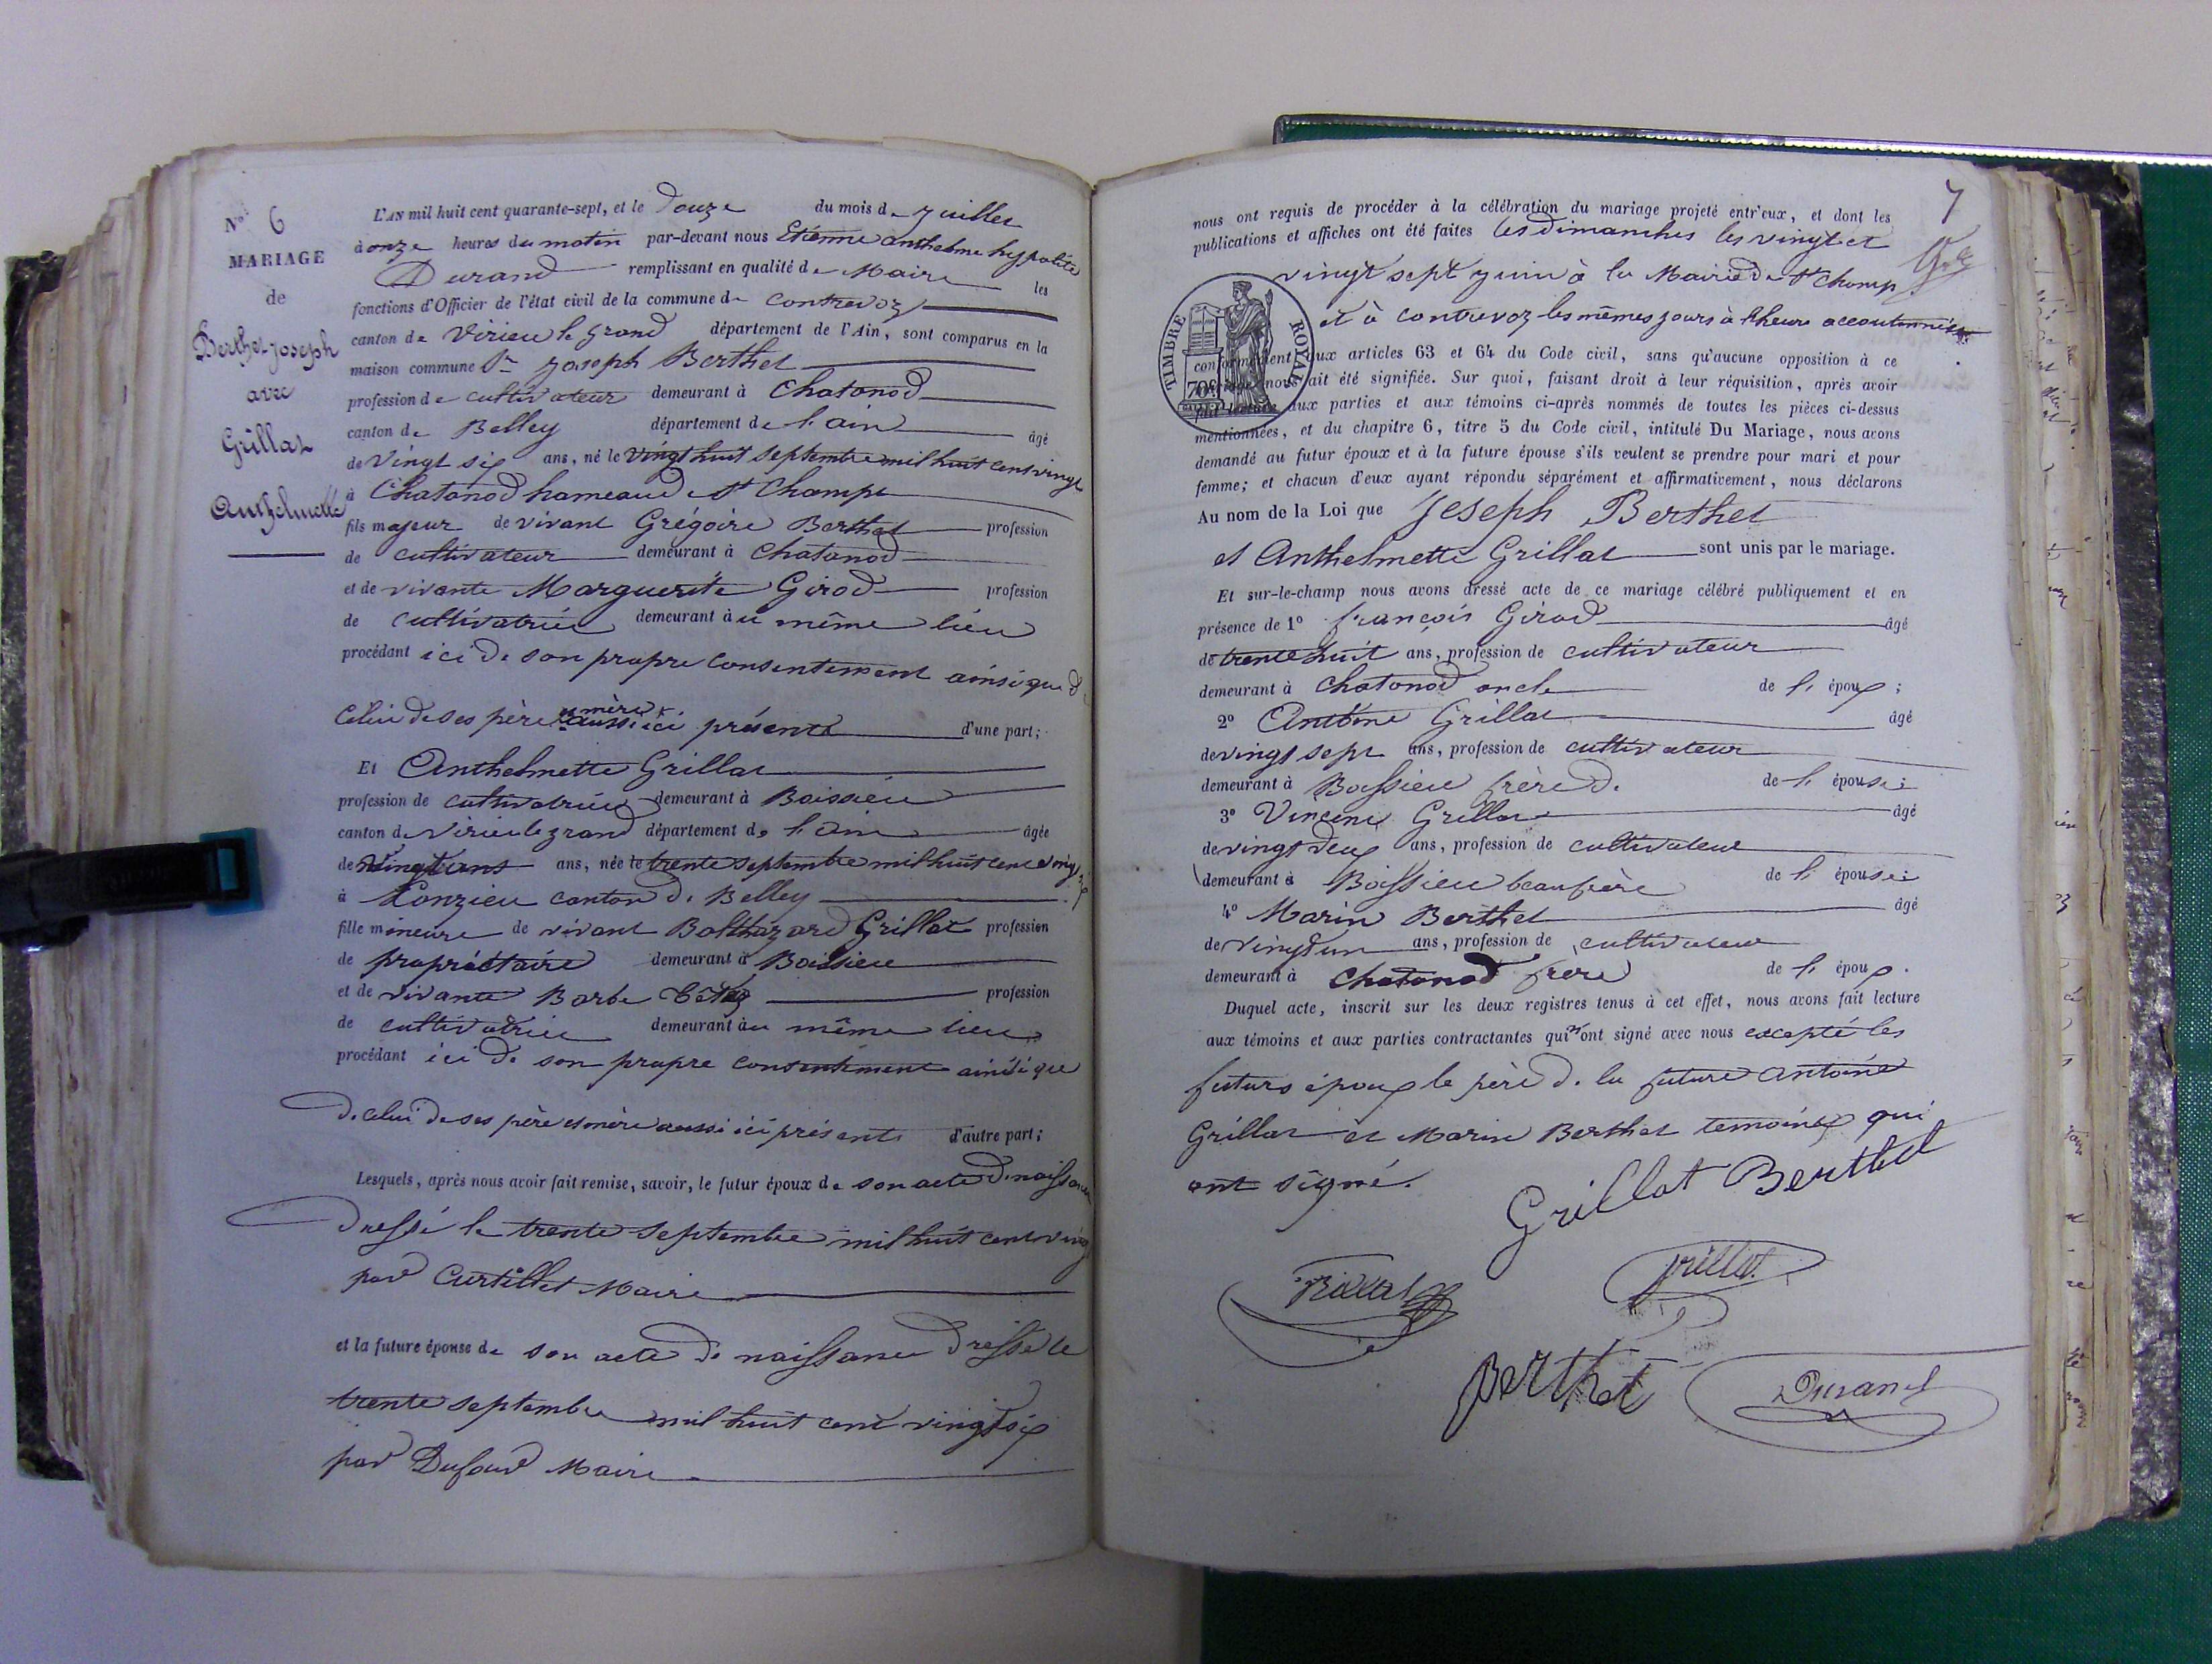 N° 6
MARIAGE
de
Berthet joseph
avec
Grillat
Anthelmette
L'AN mil huit cent quarante-sept, et le douze du mois de juillet
à onze heures du matin par-devant nous Etienne anthelme hyppolite
Durand remplissant en qualité de Maire les
fonctions d'Officier de l'état civil de la commune de Contrevoz
canton de Virieu le grand département de l'Ain, sont comparus en la
maison commune Sr joseph Berthet
profession de cultivateur demeurant à Chatonod
canton de Belley département de l'ain âgé
de Vingt six ans, né le vingt huit septembre mil huit cent vingt
à Chatonod hameau de St Champ
fils majeur de vivant Grégoire Berthet profession
de cultivateur demeurant à Chatonod
et de vivante Marguerite Girod profession
de cultivatrice demeurant au même lieu
procédant ici de son propre consentement ainsi que de
Celui de ses père et mère aussi ici présents d'une part;
Et Anthelmette Grillat
profession de cultivatrice demeurant à Boissieu
canton de Virieu le grand département de l'ain âgée
de vingt ans ans, née le trente septembre mil huit cent vingt six
à Conzieu canton de Belley
fille mineure de vivant Balthazard Grillat profession
de propriétaire demeurant à Boissieu
et de vivante Barbe profession
de cultivatrice demeurant au même lieu
procédant ici de son propre consentement ainsi que
de celui de ses père et mère aussi ici présents d'autre part;
Lesquels, après nous avoir fait remise, savoir, le futur époux de son acte de naissance
dressé le trente septembre mil huit cent vingt
par Curtillet Maire
et la future épouse de son acte de naissance dressé le
trente septembre mil huit cent vingt six
par Dufour Maire
7
nous ont requis de procéder à la célébration du mariage projeté entr'eux, et dont les
publications et affiches ont été faites les dimanches les vingt et
vingt sept juin à la Mairie de St Champ
et à contrevoz les mêmes jours à l'heure accoutumée
TIMBRE ROYAL
70c
conformément aux articles 63 et 64 du Code civil, sans qu'aucune opposition à ce
mariage nous ait été signifiée. Sur quoi, faisant droit à leur réquisition, après avoir
fait lecture aux parties et aux témoins ci-après nommés de toutes les pièces ci-dessus
mentionnées, et du chapitre 6, titre 5 du Code civil, intitulé Du Mariage, nous avons
demandé au futur époux et à la future épouse s'ils veulent se prendre pour mari et pour
femme; et chacun d'eux ayant répondu séparément et affirmativement, nous déclarons
Au nom de la Loi que Joseph Berthet
et Anthelmette Grillat sont unis par le mariage.
Et sur-le-champ nous avons dressé acte de ce mariage célébré publiquement et en
présence de 1° françois Girod âgé
de trente huit ans, profession de cultivateur
demeurant à Chatonod oncle de l' époux;
2° Antoine Grillat âgé
de vingt sept ans, profession de cultivateur
demeurant à Boissieu frère de de l' épouse;
3° Vincent Grillat âgé
de vingt deux ans, profession de cultivateur
demeurant à Boissieu beaufrère de l' épouse;
4° Marin Berthet âgé
de vingt un ans, profession de cultivateur
demeurant à Chatonod frère de l' époux.
Duquel acte, inscrit sur les deux registres tenus à cet effet, nous avons fait lecture
aux témoins et aux parties contractantes qui n'ont signé avec nous excepté les
futurs époux le père de la future antoine
Grillat et Marin Berthet temoins qui
ont signé.
Grillat Berthet
Grillat
grillat
Berthet
Durand